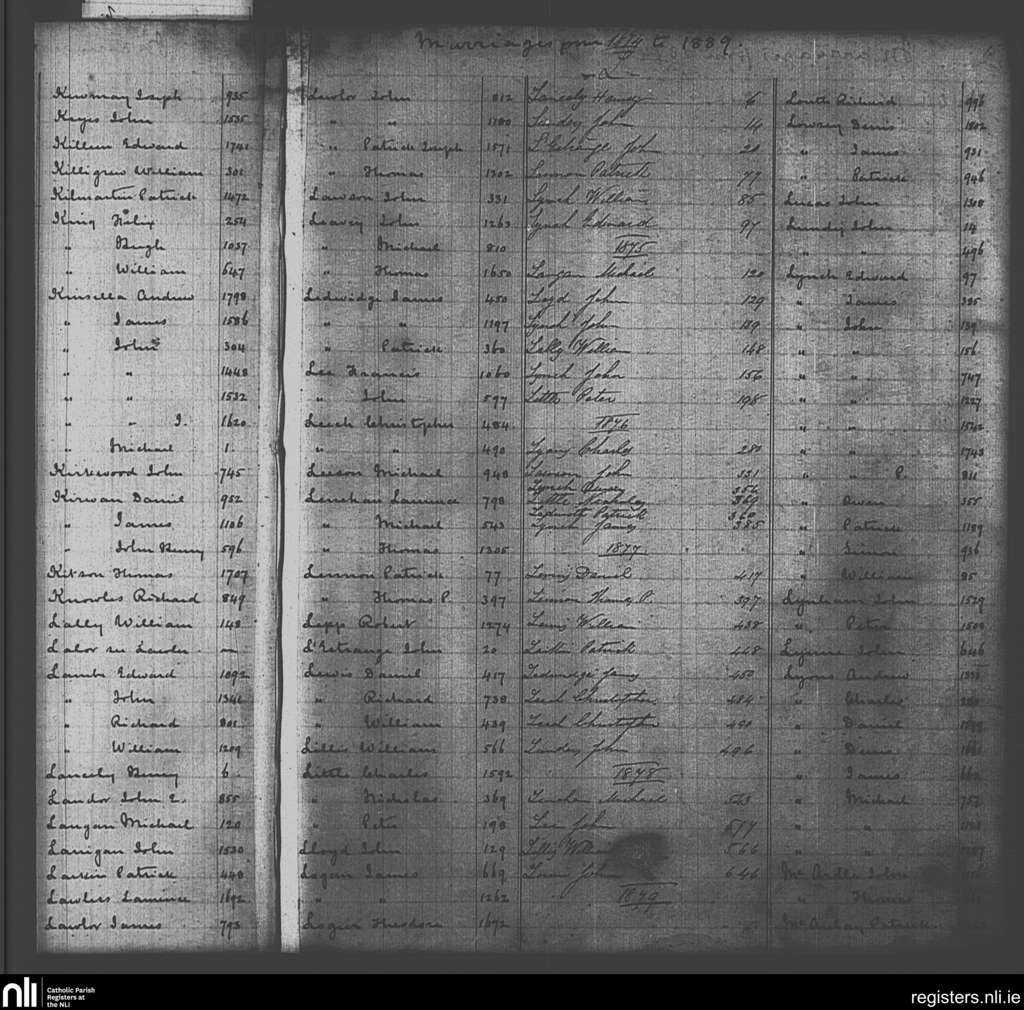 Marriages from 1874 to 1889.
L
Kewmay Joseph 935
Keyes John 1535
Killeen Edward 1741
Killigrew William 301
Kilmartin Patrick 1472
King Felix 254
" Hugh 1037
" William 647
Kinsella Andrew 1798
" James 1586
" John 304
" " 1448
" " 1532
" " J. 1620
" Michael 1
Kirkwood John 745
Kirwan Daniel 952
" James 1106
" John Henry 596
Kitson Thomas 1707
Knowles Richard 849
Lally William 148
Lalor see Lawlor
Lambe Edward 1092
" John 1342
" Richard 801
" William 1209
Lancely Henry 6
Landor John E. 855
Langan Michael 120
Lanigan John 1530
Larkin Patrick 448
Lawless Laurence 1692
Lawlor James 793
Lawlor John 812
" " 1180
" Patrick Joseph 1571
" Thomas 1302
Lawson John 331
Leavy John 1263
" Michael 810
" Thomas 1650
Ledwidge James 450
" " 1197
" Patrick 360
Lee Francis 1060
" John 597
Leech Christopher 484
" " 490
Leeson Michael 948
Lenehan Laurence 798
" Michael 543
" Thomas 1305
Lennon Patrick 77
" Thomas P. 397
Lepp Robert 1274
L'Estrange John 20
Lewis Daniel 417
" Richard 738
" William 439
Lillis William 566
Little Charles 1592
" Nicholas 369
" Peter 198
Lloyd John 129
Logan James 669
" " 1262
Logier Theodore 1672
Lancely Henry 6
Lundy John 14
L'Estrange John 20
Lennon Patrick 77
Lynch William 85
Lynch Edward 97
1875
Langan Michael 120
Loyd John 129
Lynch John 139
Lally William 148
Lynch John 156
Little Peter 198
1876
Lyons Charles 280
Lawson John 331
Lynch 356
Little Nicholas 369
Ledwith Patrick 360
Lynch James 385
1877
Lewis Daniel 417
Lennon Thomas P. 397
Lewis William 438
Larkin Patrick 448
Ledwidge James 450
Leech Christopher 484
Leech Christopher 490
Lundy John 496
1878
Lenehan Michael 543
Lee John 577
Lillis William 566
John 646
1879
Louth Richard 996
Lowrey Denis 1802
" James 931
" Patrick 946
Lucas John 1308
Lundy John 14
" " 496
Lynch Edward 97
" James 385
" John 139
" " 156
" " 747
" " 1227
" " 1542
" " 1743
" " P. 811
" Owen 355
" Patrick 1189
" Simon 936
" William 85
Lynham John 1529
" Peter 1509
Lynne John 646
Lyons Andrew
" Charles 280
" Daniel
" Denis
" James 662
" Michael 752
" "
" "
Mc Ardle John
" Thomas
Patrick
nli
Catholic Parish
Registers at
the NLI
registers.nli.ie